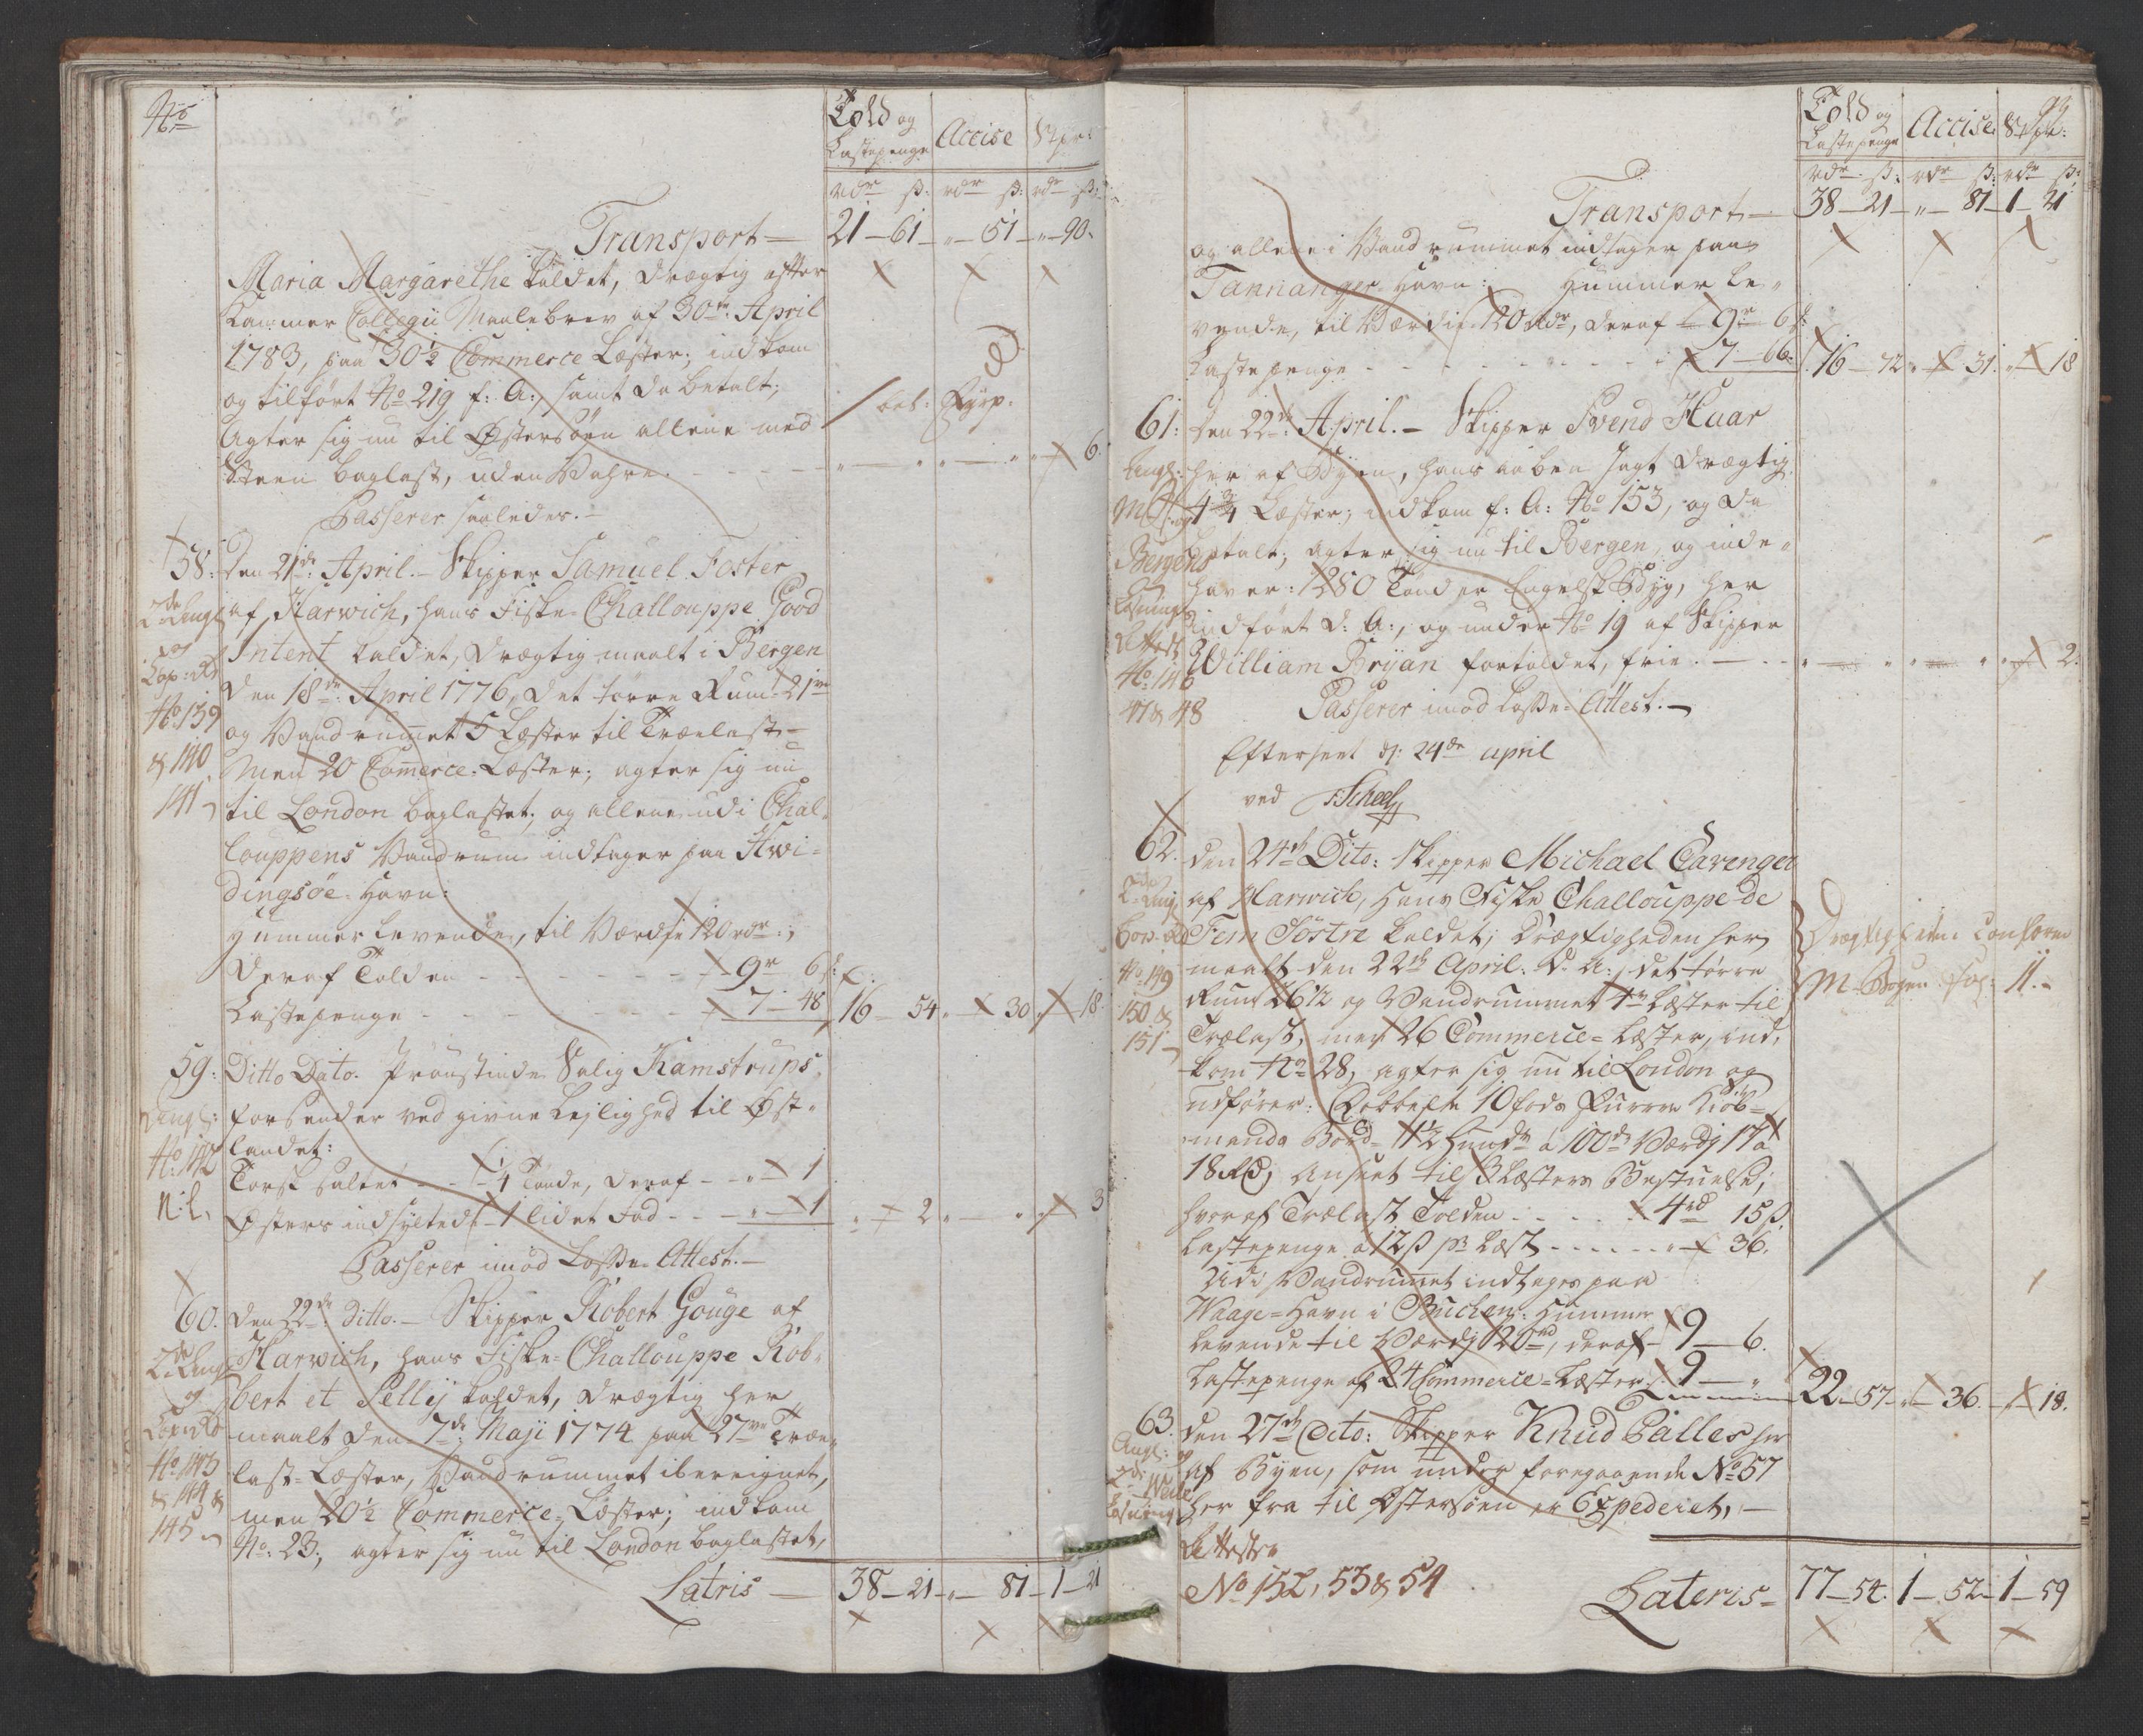 No
Told og Lastepenge Accise
rdr ß: rdr ß: rdr ß:
Transport — 21 — 61 — „ — 51 — „ — 90.
Maria Margarethe kaldet, drægtig efter
Kammer Collegii Maalebrev af 30te April
1783, paa 30½ Commerce Læster; indkom
og tilført No 219 f: A:, samt da betalt;
Agter sig nu til Østersöen allene med
Steen baglast, uden Vahre. — 6.
Passerer saaledes. —
58: Den 21de April. — Skipper Samuel Foster
af Harwich, hans Fiske-Challouppe Good
Intent kaldet, drægtig maalt i Bergen
den 18de April 1776, det törre Rum 21
og Vandrummet 5 Læster til Trælast —
Men 20 Comerce-Læster; agter sig nu
til London baglastet, og allene udi Chal-
louppens Vandrum indtager paa Hwi-
dingsöe-Havn:
Hummer levende, til Værdie 120 rdr:,
deraf Tolden — 9r 6ß
Lastepenge — 7 — 48 16 — 54 „ — 30 „ 18.
2de
No 139
& 140
141
59: Ditto Dato. Proustinde Salig Kamstrups,
forsender ved givne Lejlighed til Öst-
landet:
Torsk saltet — ¼ Tönde, deraf — „ — 1
Östers indsyltede — 1 lidet Fad — „ — 1 „ — 2 — „ — 3
Passerer imod Losse-Attest. —
No 142
60. Den 22de Ditto. — Skipper Robert Gouge af
Harwich, hans Fiske-Challouppe Rob-
bert et Sellij kaldet, drægtig her
maalt den 7de Maji 1774 paa 27 Træ-
last-Læster, Vandrummet iberegnet,
men 20½ Commerce-Læster; indkom
No: 23; agter sig nu til London baglastet,
2de
No 143
& 144 &
145
Latris — 38 — 21 — „ — 81 — 1 — 21
Told og Lastepenge Accise
rdr ß: rdr ß: rdr ß:
Transport — 38 — 21 — „ — 81 — 1 — 21
og allene i Vandrummet indtager paa
Tannanger-Havn: Hummer le-
vende, til Værdie 120 Rdr, deraf — 9r 6ß
Lastepenge — 7 — 66. 16 — 72 „ 31. „ 18
61: Den 22de April. — Skipper Svend Haar
her af Byen, hans aaben Jagt drægtig
4¾ Læster; indkom f: A: No 153, og da
betalt; agter sig nu til Bergen, og inde-
haver: 280 Tönder Engelsk Byg, her
indfört d: A:, og under No 19 af Skipper
William Bryan fortoldet, frie. — 2.
Passerer imod Losse-Attest. —
Bergens
No: 146
47 & 48
Efterseet d: 24de april
ved Scheel
62. den 24de Dito: Skipper Michael Cavenger
af Harwich, Hans Fiske Challouppe De
Fem Söstre kaldet; Drægtigheden her
maalt den 22de April: d: A:, det törre
Rum 26½ og Vandrummet 4 Læster til
Trælast, men 26 Commerce-Læster, ind-
kom No 28, agter sig nu til London og
udförer: 10 fods Furrue Kiöb-
mands Bord — 1½ Hundr: a 100de Værdj 17 a
18 Rd, Anseet til 3 Læsters Bestuelse;
hvoraf Trælast Tolden — 4rd 15ß.
Lastepenge a 12ß pr Læst — „ 36.
Udi Vandrummet indtages paa
Waage-Havn i Buchen: Hummer
levende til Værdj 120rd, deraf — 9 — 6.
Lastepenge af 24 Commerce-Læster — 9 — „ 22 — 57 — „ 36. — „ 18.
No 149
150 &
151
Drægtigheden: Conform
M-Bogen Fol: 11. —
63. den 27de Dito: Skipper Knud Palles her
af Byen, som under foregaaende No 57
her fra til Östersöen er Expederet, —
Attester
No 152, 53 & 54
Lateris — 77 — 54. 1 — 52 — 1 — 59